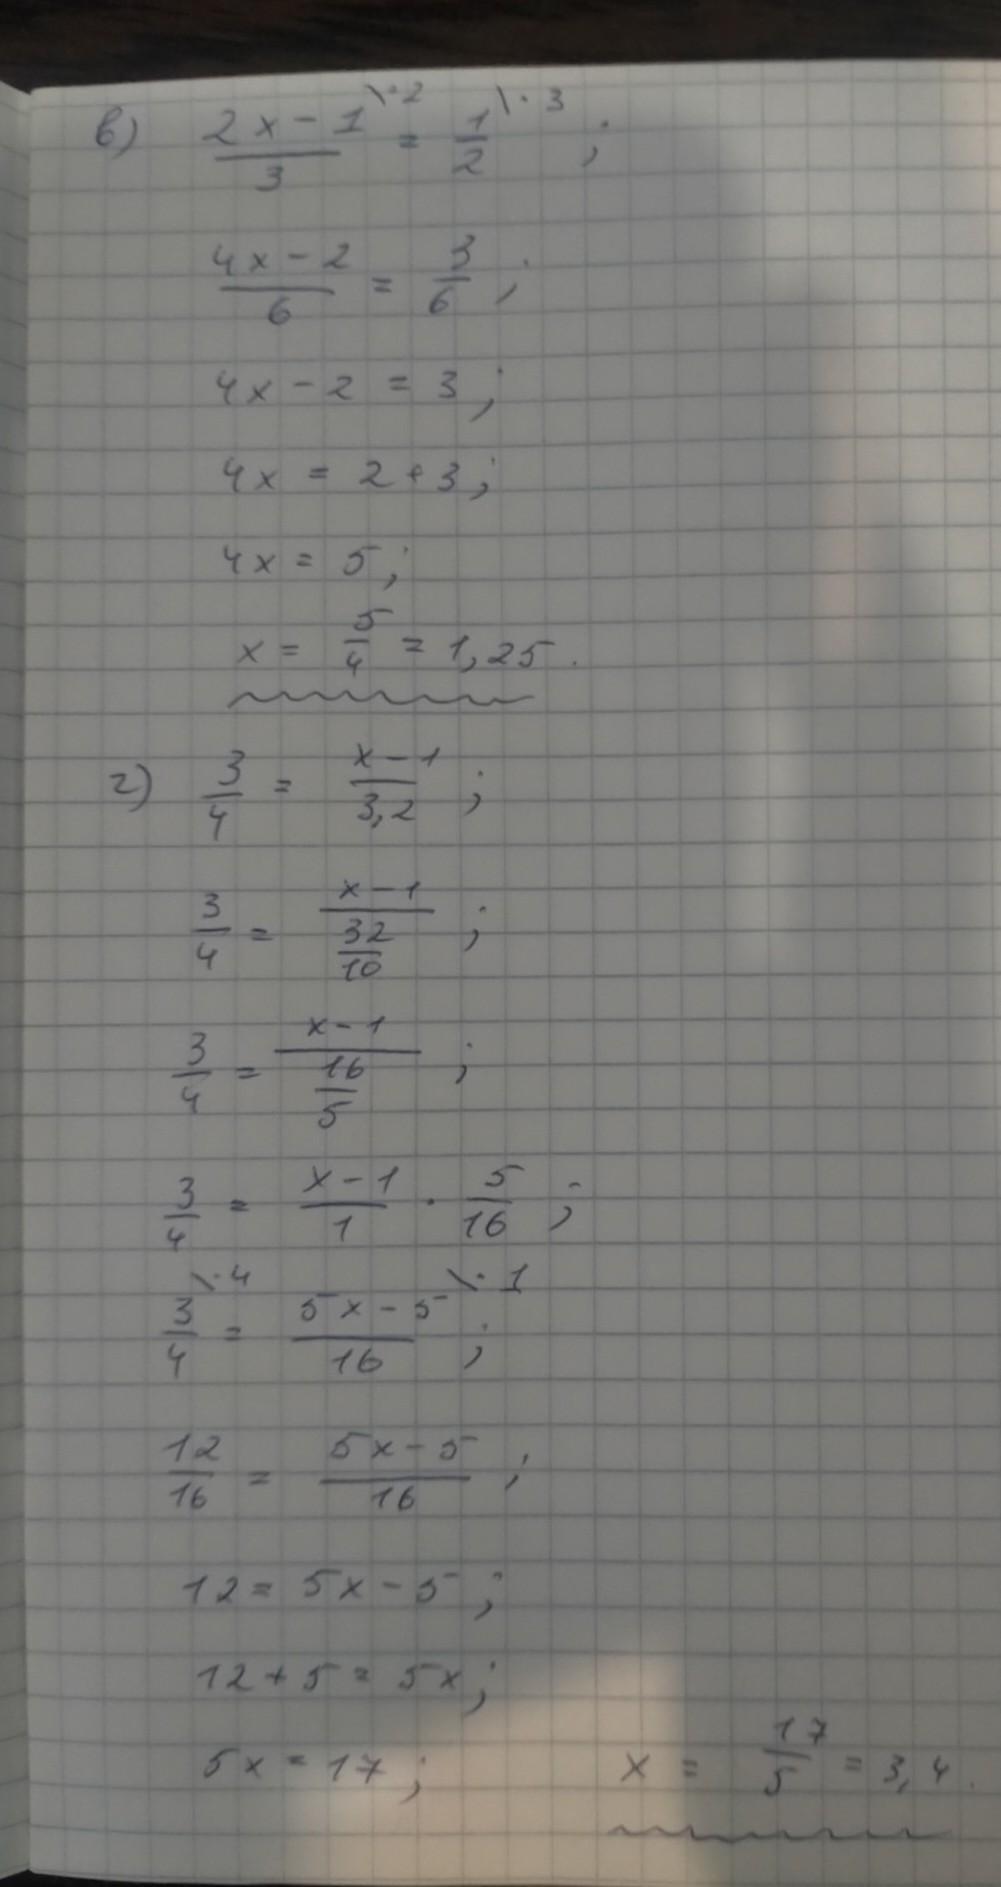 в) (2x-1)/3 \·2 = 1/2 \·3 ;
(4x-2)/6 = 3/6 ;
4x-2 = 3;
4x = 2+3;
4x = 5;
x = 5/4 = 1,25.
г) 3/4 = (x-1)/3,2 ;
3/4 = (x-1)/(32/10) ;
3/4 = (x-1)/(16/5) ;
3/4 = (x-1)/1 · 5/16 ;
3/4 \·4 = (5x-5)/16 \·1 ;
12/16 = (5x-5)/16 ;
12 = 5x-5 ;
12+5 = 5x;
5x = 17; x = 17/5 = 3,4.